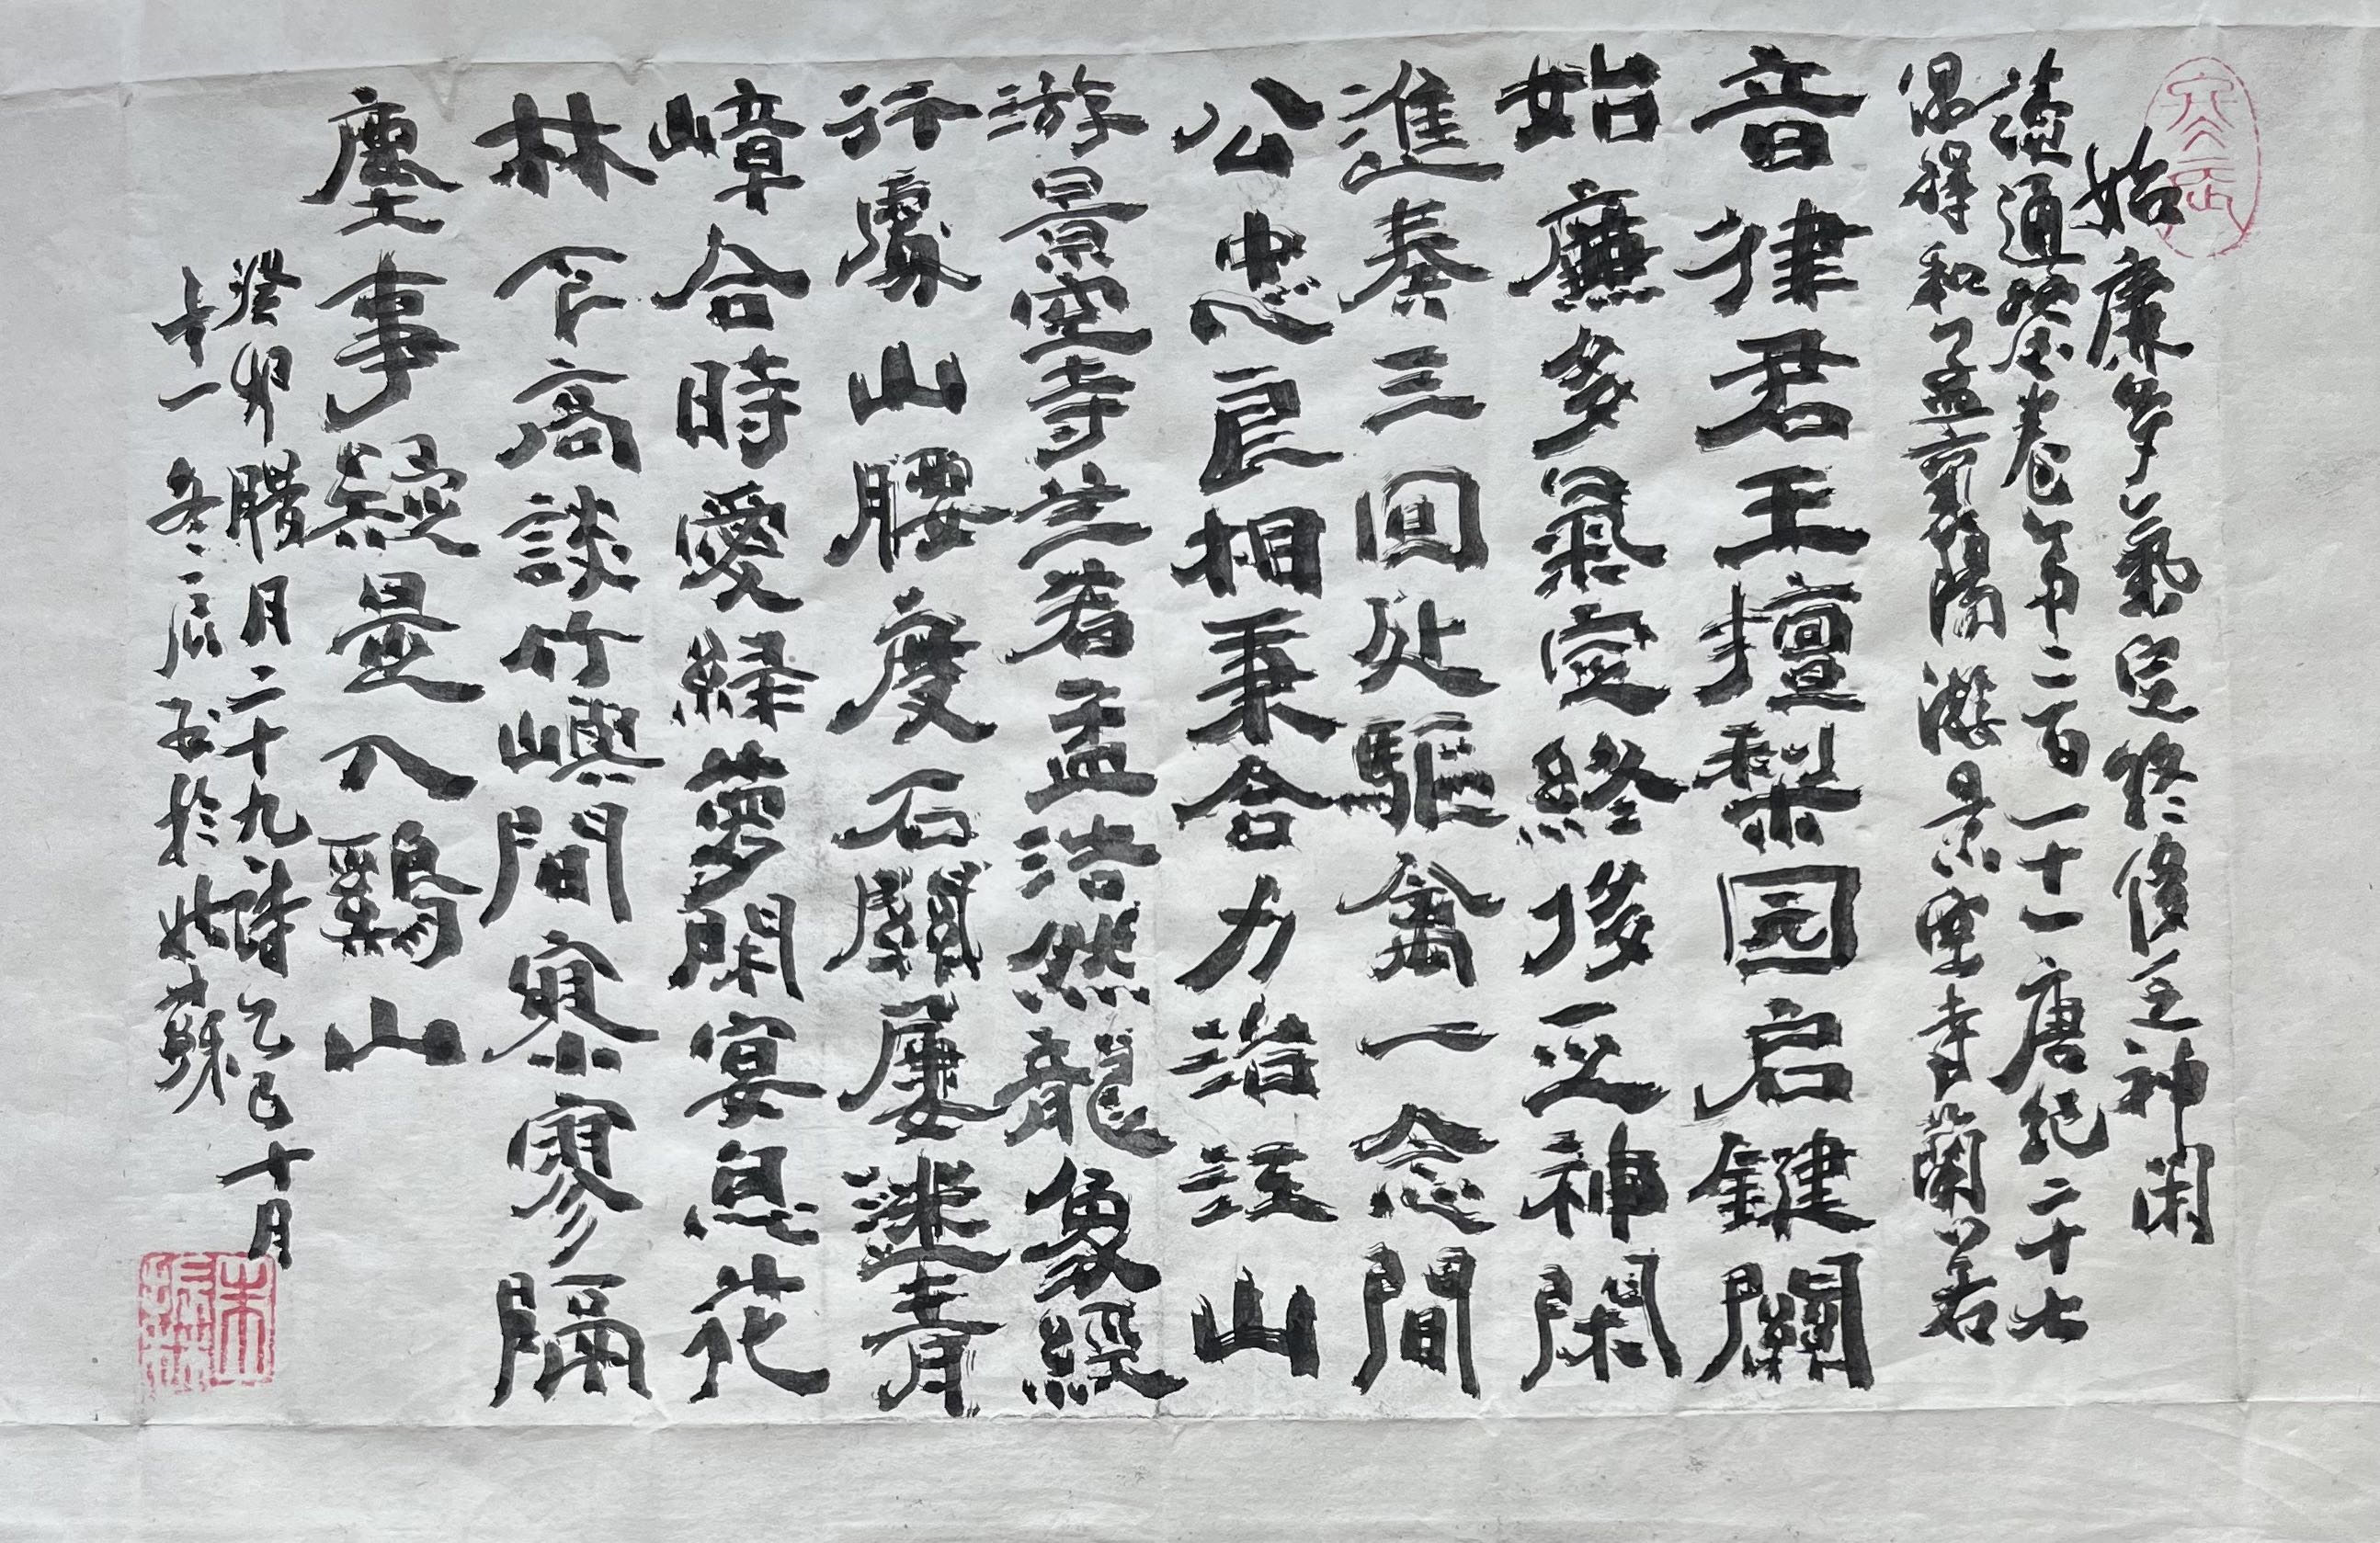 始廉多氣定終侈乏神閑
讀通鑒卷第二百一十一唐紀二十七
偶得和了孟襄陽遊景空寺蘭若
音律君王擅梨园启鍵關
始廉多氣定終侈乏神閑
進奏三回处驅禽一念間
公忠良相秉合力治江山
游景空寺兰若孟浩然龍象經
行處山腰度石關屢迷青
嶂合時愛綠蘿閑宴息花
林下高談竹嶼間寥寥隔
塵事疑是入鷄山
癸卯腊月二十九詩乙巳十月
十一冬辰书於姑蘇